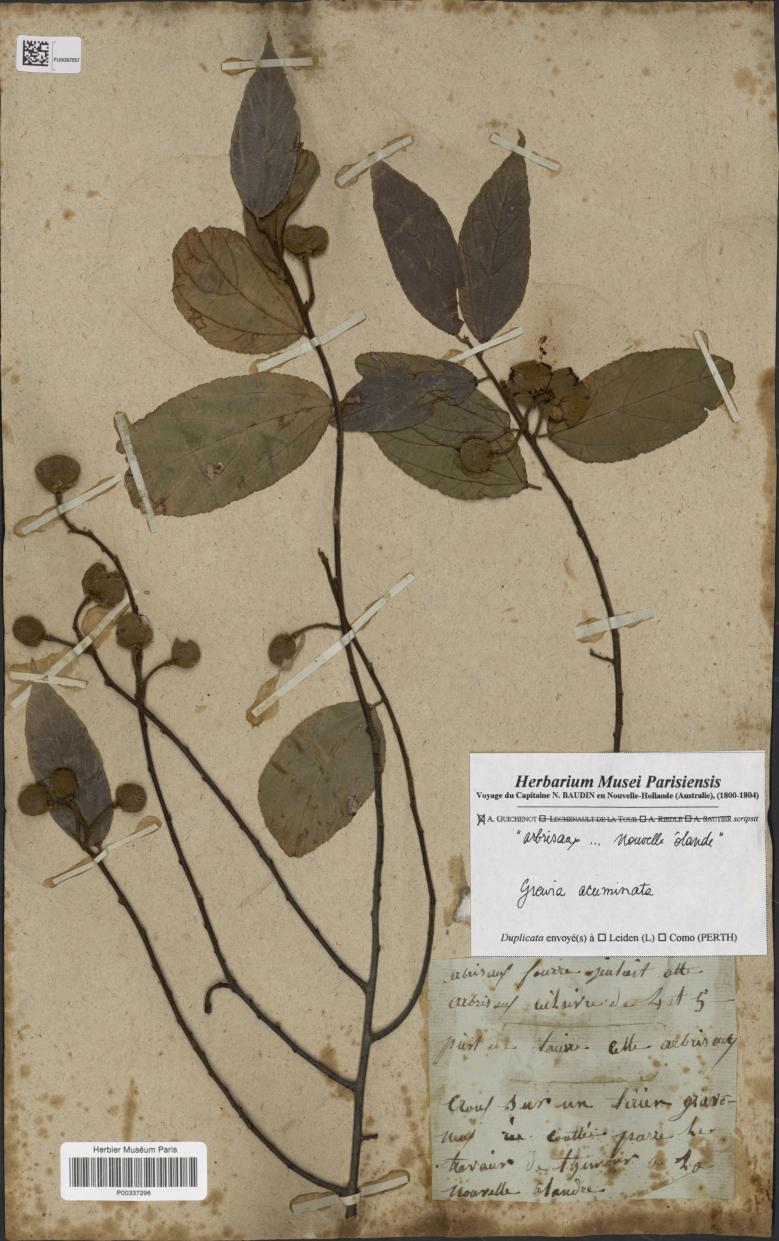 PL04387257
Herbarium Musei Parisiensis
Voyage du Capitaine N. BAUDIN en Nouvelle-Hollande (Australie), (1800-1804)
☒ A. GUICHENOT ☐ LECHENAULT DE LA TOUR ☐ A. RIEDLE ☐ A. SAUTIER scripsit
"arbrisaux ... Nouvelle ôlande"
Grewia acuminata
Duplicata envoyé(s) à ☐ Leiden (L) ☐ Como (PERTH)
arbrisaux
arbrisaux de 4 et 5
de cette arbrisaux
Croux sur un grave-
de a La
nouvelle ôlandre
Herbier Muséum Paris
P00337296